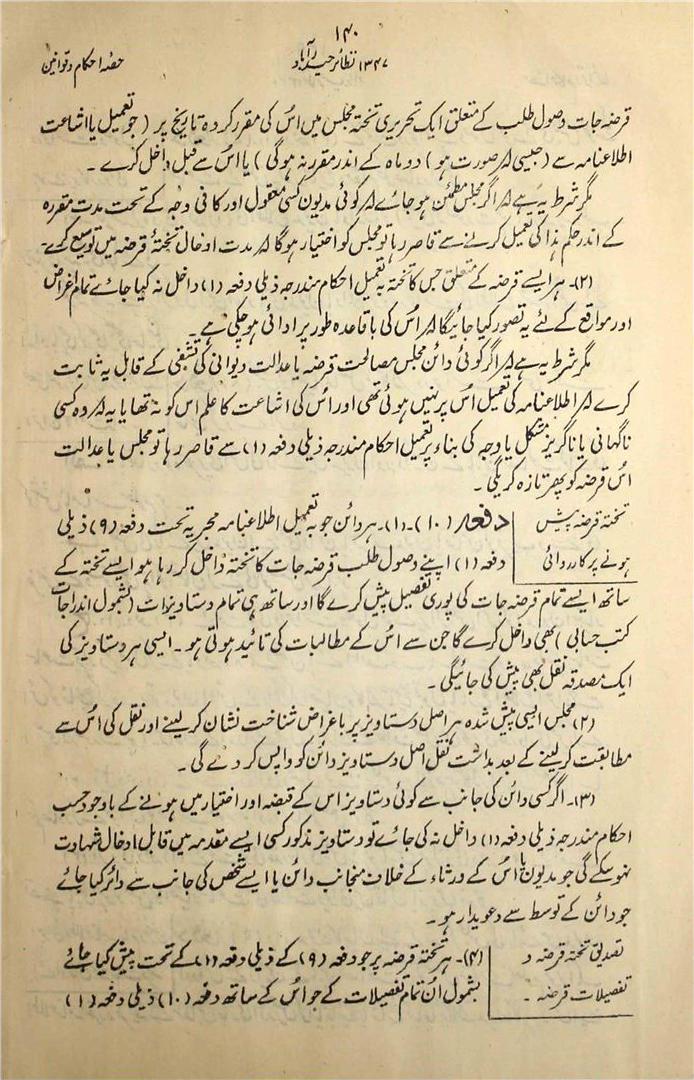 ۱۴۰
۱۳۴۷ نظائر حیدرآباد
حصہ احکام و قوانین
قرضہ جات وصول طلب کے متعلق ایک تحریری تختہ مجلس میں اُس کی مقرر کردہ تاریخ پر (جو تعمیل یا اشاعت
اطلاعنامہ سے (جیسی کہ صورت ہو) دو ماہ کے اندر مقرر نہ ہوگی) یا اس سے قبل داخل کرے ۔
مگر شرط یہ ہے کہ اگر مجلس مطمئن ہو جائے کہ کوئی مدیون کسی معقول اور کافی وجہ کے تحت مدت مقررہ
کے اندر حکم ہذا کی تعمیل کرنے سے قاصر رہا تو مجلس کو اختیار ہوگا کہ مدت ادخال تختۂ قرضہ میں توسیع کرے۔
(۲)۔ ہر ایسے قرضہ کے متعلق جس کا تختہ بہ تعمیل احکام مندرجہ ذیلی دفعہ (۱) داخل نہ کیا جائے تمام اغراض
اور مواقع کے لئے یہ تصور کیا جائیگا کہ اُس کی باقاعدہ طور پر ادائی ہو چکی ہے۔
مگر شرط یہ ہے کہ اگر کوئی دائن مجلس مصالحت قرضہ یا عدالت دیوانی کی تشفی کے قابل یہ ثابت
کرے کہ اطلاعنامہ کی تعمیل اُس پر نہیں ہوئی تھی اور اُس کی اشاعت کا علم اس کو نہ تھا یا یہ کہ وہ کسی
ناگہانی یا ناگریز مشکل یا وجہ کی بناء پر تعمیل احکام مندرجہ ذیلی دفعہ (۱) سے قاصر رہا تو مجلس یا عدالت
اُس قرضہ کو پھر تازہ کریگی ۔
تختہ قرضہ پیش
ہونے پر کارروائی
دفعہ (۱۰)۔(۱)۔ ہر دائن جو بہ تعمیل اطلاعنامہ مجریہ تحت دفعہ (۹) ذیلی
دفعہ (۱) اپنے وصول طلب قرضہ جات کا تختہ داخل کر رہا ہو ایسے تختہ کے
ساتھ ایسے تمام قرضہ جات کی پوری تفصیل پیش کرے گا اور ساتھ ہی تمام دستاویزات (بشمول اندراجات
کتب حسابی) بھی داخل کرے گا جن سے اس کے مطالبات کی تائید ہوتی ہو ۔ ایسی ہر دستاویز کی
ایک مصدقہ نقل بھی پیش کی جائیگی ۔
(۲) مجلس ایسی پیش شدہ ہر اصل دستاویز پر باغراض شناخت نشان کر لینے اور نقل کی اُس سے
مطابقت کر لینے کے بعد بداشت نقل اصل دستاویز دائن کو واپس کر دے گی ۔
(۳)۔ اگر کسی دائن کی جانب سے کوئی دستاویز اس کے قبضہ اور اختیار میں ہونے کے باوجود حسب
احکام مندرجہ ذیلی دفعہ (۱) داخل نہ کی جائے تو دستاویز مذکور کسی ایسے مقدمہ میں قابل ادخال شہادت
نہو سکے گی جو مدیون یا اُس کے ورثاء کے خلاف منجانب دائن یا ایسے شخص کی جانب سے دائر کیا جائے
جو دائن کے توسط سے دعویدار ہو ۔
تصدیق تختہ قرضہ و
تفصیلات قرضہ ۔
(۴)۔ ہر تختہ قرضہ پر جو دفعہ (۹) کے ذیلی دفعہ (۱) کے تحت پیش کیا جائے
بشمول اُن تمام تفصیلات کے جو اُس کے ساتھ دفعہ (۱۰) ذیلی دفعہ (۱)